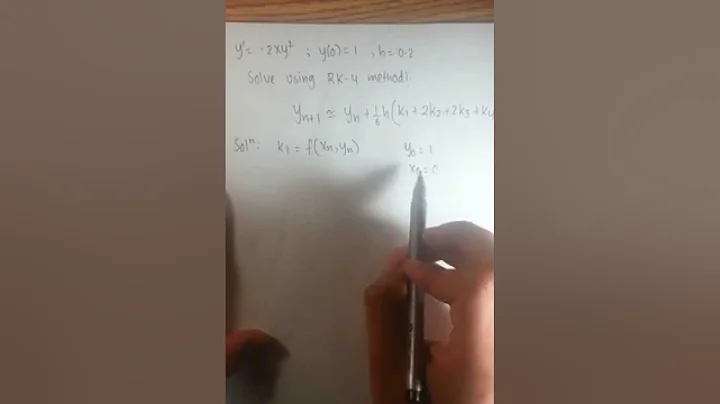 y' = -2xy² ; y(0) = 1 , h = 0.2
Solve using RK-4 method:
yₙ₊₁ ≃ yₙ + 1/6 h(k₁ + 2k₂ + 2k₃ + k₄
Solⁿ: k₁ = f(xₙ, yₙ) y₀ = 1
x₀ = 0